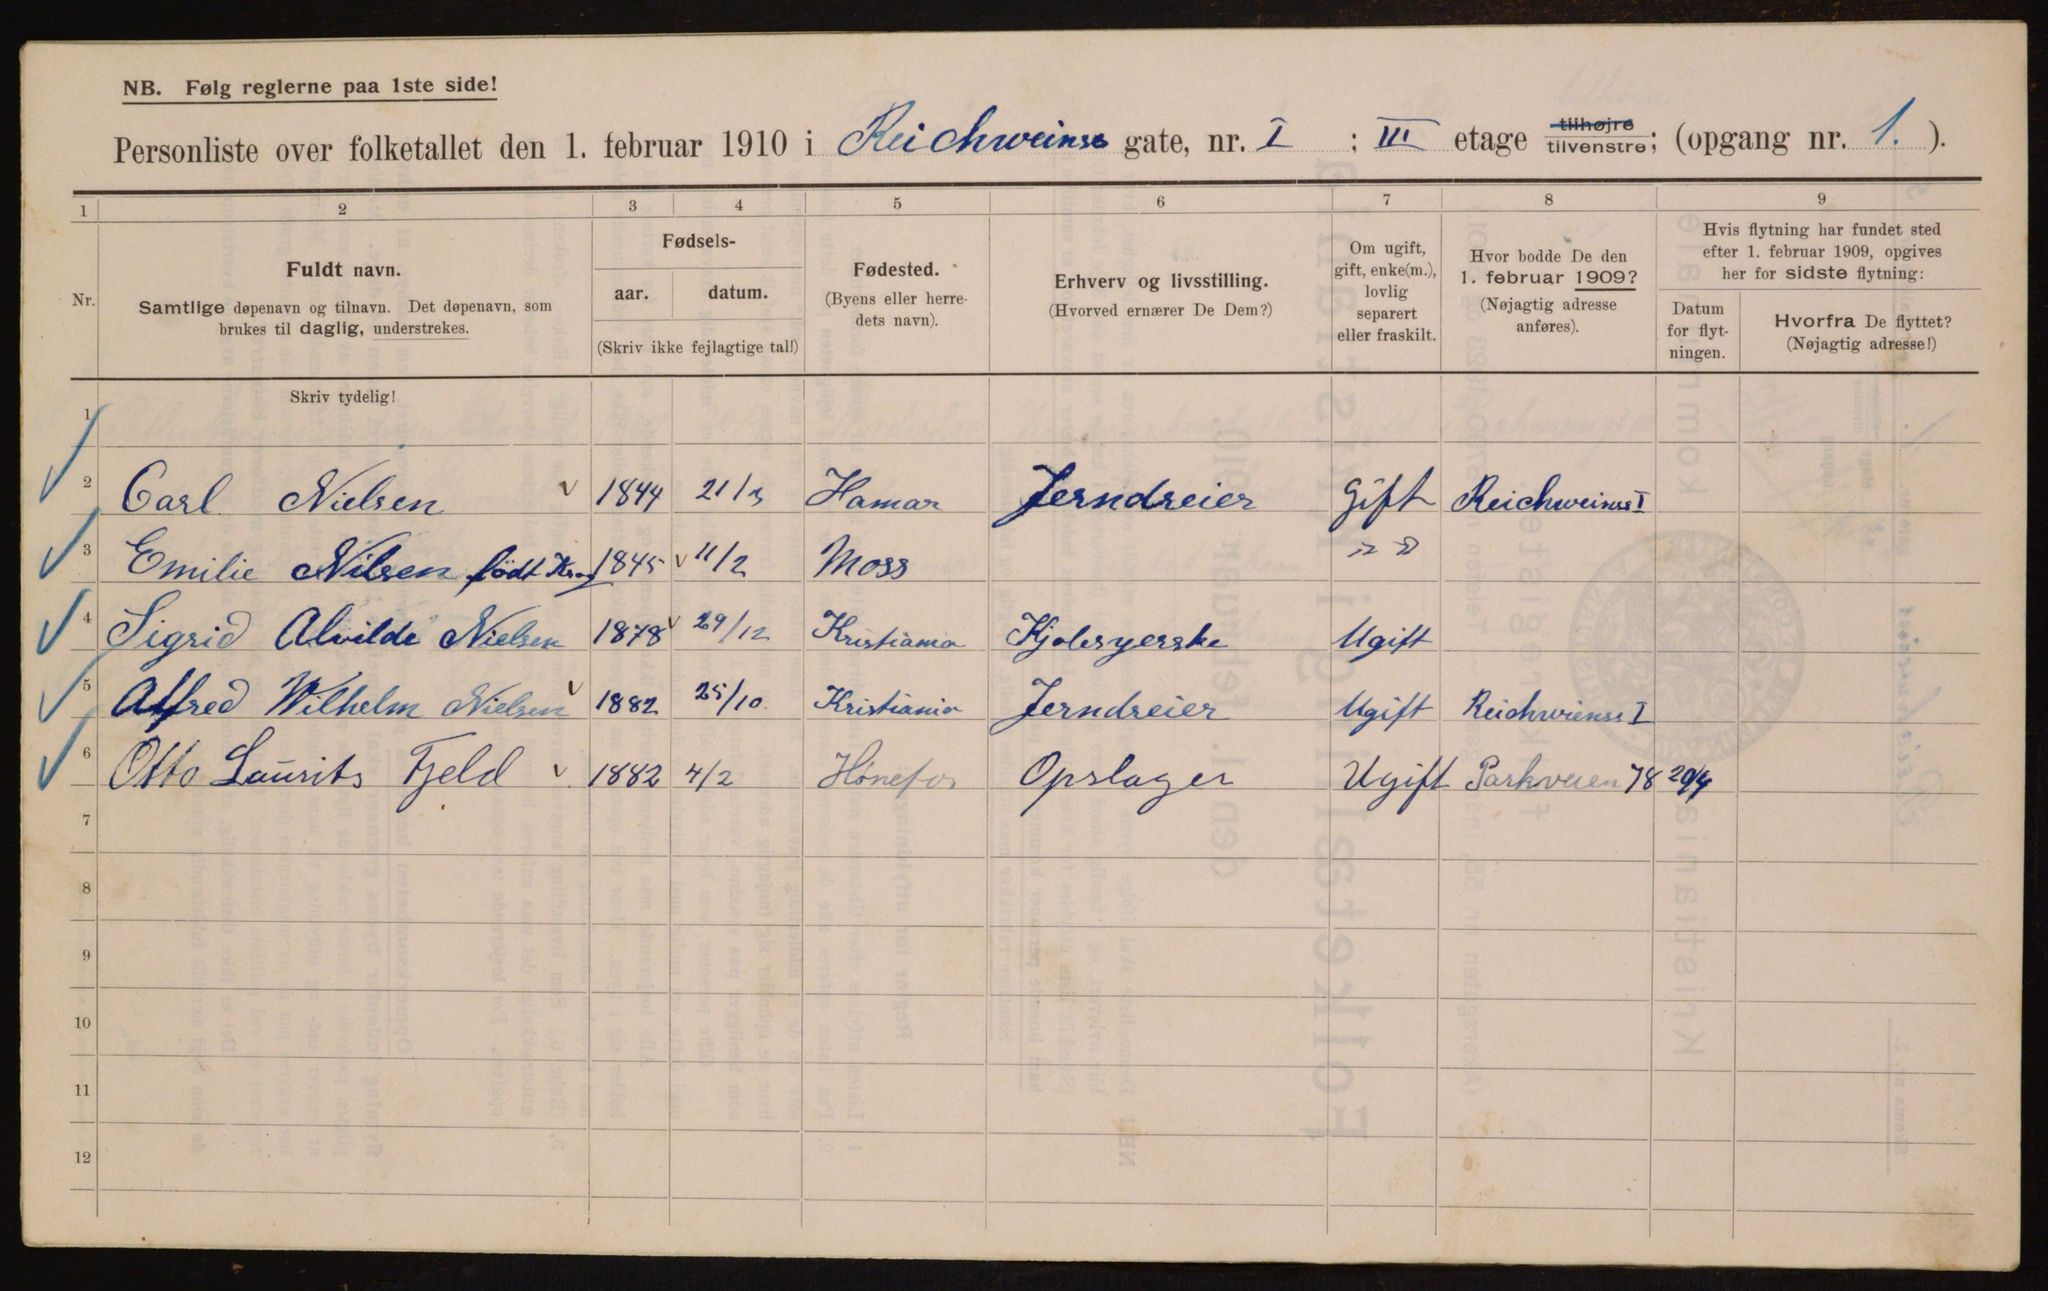 NB. Følg reglerne paa 1ste side!
Personliste over folketallet den 1. februar 1910 i Reichweinss gate, nr. I ; III etage tilhøjre tilvenstre; (opgang nr. 1. ).
1 2 3 4 5 6 7 8 9
Nr.
Fuldt navn.
Samtlige døpenavn og tilnavn. Det døpenavn, som
brukes til daglig, understrekes.
Fødsels-
aar. datum.
(Skriv ikke fejlagtige tal!)
Fødested.
(Byens eller herre-
dets navn).
Erhverv og livsstilling.
(Hvorved ernærer De Dem?)
Om ugift,
gift, enke(m.),
lovlig
separert
eller fraskilt.
Hvor bodde De den
1. februar 1909?
(Nøjagtig adresse
anføres).
Hvis flytning har fundet sted
efter 1. februar 1909, opgives
her for sidste flytning:
Datum
for flyt-
ningen.
Hvorfra De flyttet?
(Nøjagtig adresse!)
Skriv tydelig!
1
2 Carl Nielsen 1844 21/3 Hamar Jerndreier Gift Reichweinss I
3 Emilie Nilsen født 1845 11/2 Moss " "
4 Sigrid Alvilde Nielsen 1878 29/12 Kristiania Kjolesyerske Ugift
5 Alfred Wilhelm Nielsen 1882 25/10 Kristiania Jerndreier Ugift Reichwienss I
6 Otto Laurits Fjeld 1882 4/2 Hønefos Opslager Ugift Parkveien 78 20/4
7
8
9
10
11
12